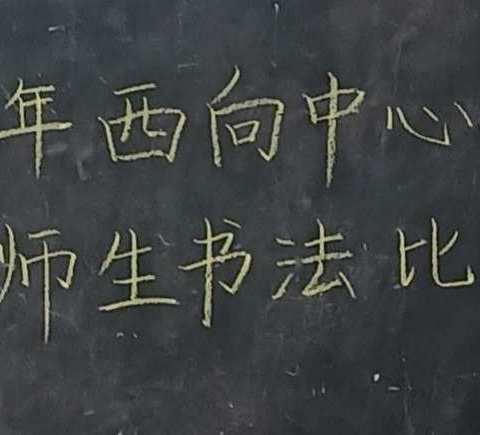 年西向中心
师生书法比